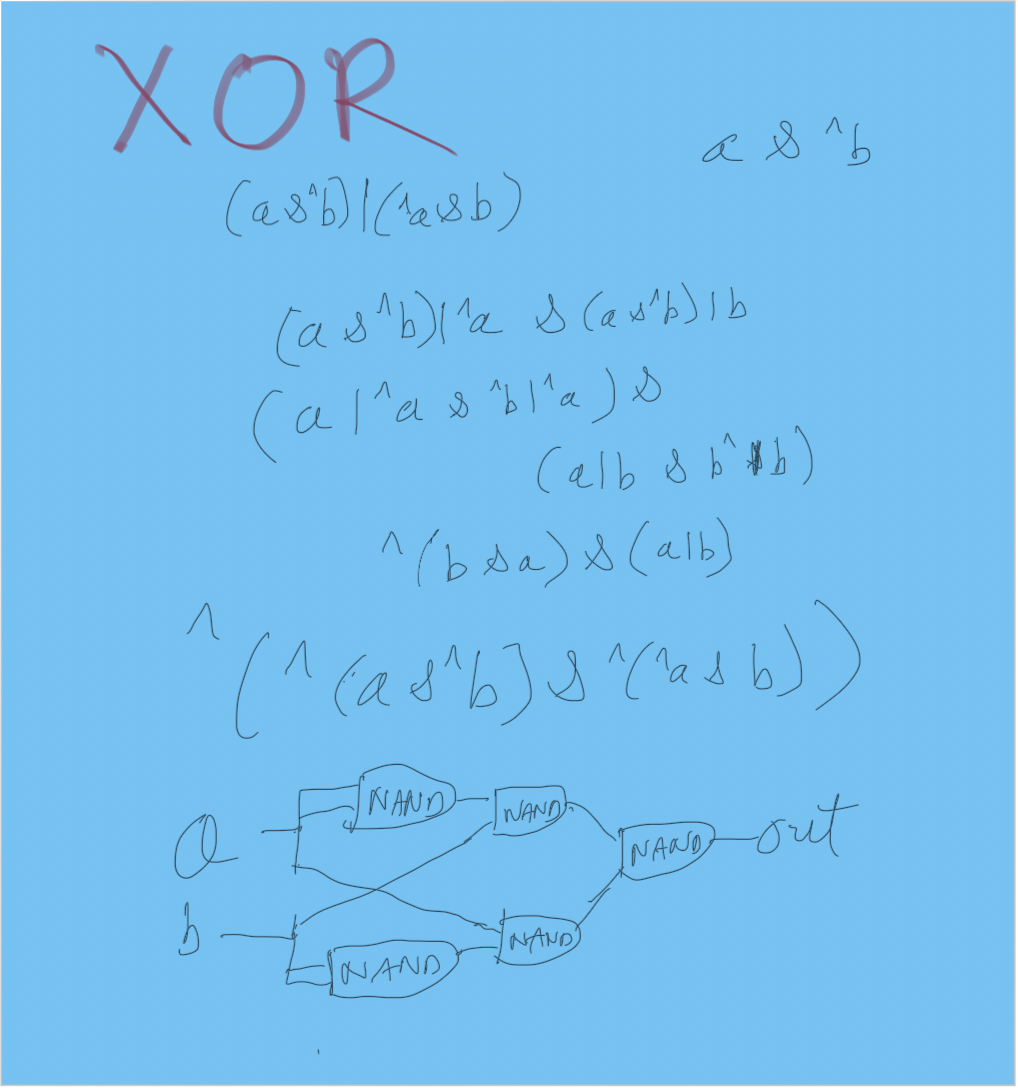 XOR
a & ^b
(a & ^b) | (^a & b)
(a & ^b) | ^a & (a & ^b) | b
(a | ^a & ^b | ^a) &
(a | b & b^ | b)
^(b & a) & (a | b)
^(^(a & ^b) & ^(^a & b))
NAND NAND
a NAND out
b NAND
NAND